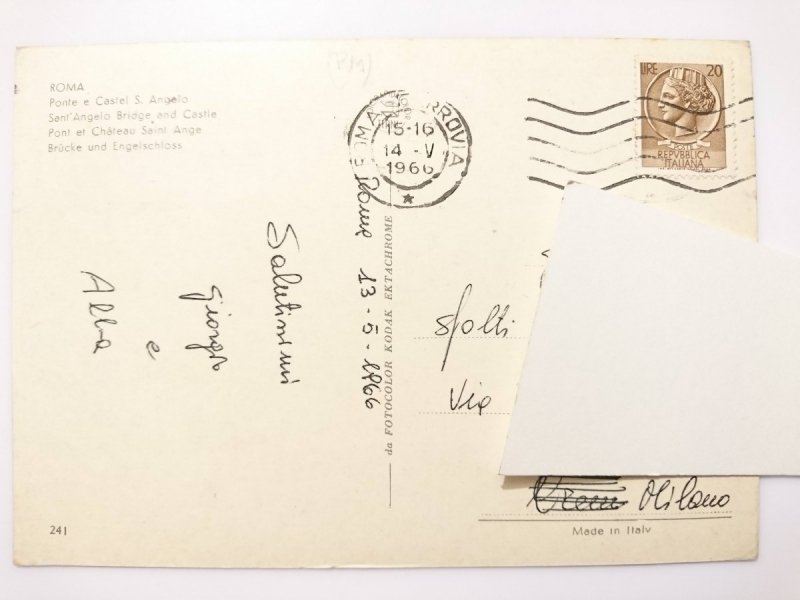 ROMA
Ponte e Castel S. Angelo
Sant'Angelo Bridge and Castle
Pont et Château Saint Ange
Brücke und Engelschloss
ROMA FERROVIA
15-16
14 -V
1966
LIRE 20
POSTE
REPVBBLICA
ITALIANA
Roma 13-5-1966
Salutissimi
Giorgio
e
Alba
da FOTOCOLOR KODAK EKTACHROME
Spolti
Via
Milano
241
Made in Italy